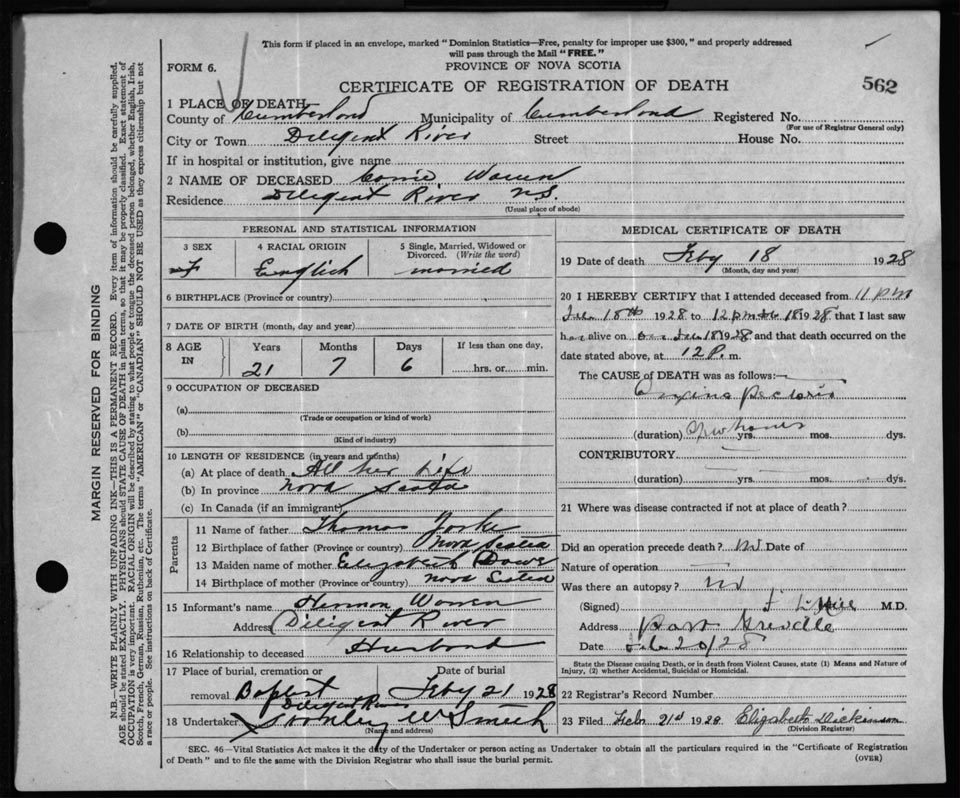 This form if placed in an envelope, marked "Dominion Statistics—Free, penalty for improper use $300," and properly addressed
will pass through the Mail "FREE."
FORM 6.
PROVINCE OF NOVA SCOTIA
CERTIFICATE OF REGISTRATION OF DEATH
562
1 PLACE OF DEATH
County of Cumberland Municipality of Cumberland Registered No.
(For use of Registrar General only)
City or Town Diligent River Street House No.
If in hospital or institution, give name
2 NAME OF DECEASED Warren
Residence Diligent River N.S.
(Usual place of abode)
PERSONAL AND STATISTICAL INFORMATION
3 SEX 4 RACIAL ORIGIN 5 Single, Married, Widowed or
Divorced. (Write the word)
F English married
6 BIRTHPLACE (Province or country)
7 DATE OF BIRTH (month, day and year)
8 AGE IN Years Months Days If less than one day,
21 7 6 hrs. or min.
9 OCCUPATION OF DECEASED
(a)
(Trade or occupation or kind of work)
(b)
(Kind of industry)
10 LENGTH OF RESIDENCE (in years and months)
(a) At place of death All her life
(b) In province Nova Scotia
(c) In Canada (if an immigrant)
Parents
11 Name of father Thomas Yorke
12 Birthplace of father (Province or country) Nova Scotia
13 Maiden name of mother Elizabeth
14 Birthplace of mother (Province or country) Nova Scotia
15 Informant's name Warren
Address Diligent River
16 Relationship to deceased Husband
17 Place of burial, cremation or Date of burial
removal Baptist Feby 21 1928
Diligent River
18 Undertaker Stanley W Smith
(Name and address)
MEDICAL CERTIFICATE OF DEATH
19 Date of death Feby 18 1928
(Month, day and year)
20 I HEREBY CERTIFY that I attended deceased from 11 pm
Feb 18th 1928 to 12 pm Feb 18 1928 that I last saw
her alive on Feb 18 1928 and that death occurred on the
date stated above, at 12 P. m.
The CAUSE of DEATH was as follows:
Angina Pectoris
(duration) few hours yrs. mos. dys.
CONTRIBUTORY
(duration) yrs. mos. dys.
21 Where was disease contracted if not at place of death?
Did an operation precede death? no Date of
Nature of operation
Was there an autopsy? no
(Signed) Hill M.D.
Address Port Greville
Date Feb 20/28
State the Disease causing Death, or in death from Violent Causes, state (1) Means and Nature of
Injury, (2) whether Accidental, Suicidal or Homicidal.
22 Registrar's Record Number
23 Filed Feb 21st 1928 Elizabeth Dickinson
(Division Registrar)
SEC. 46—Vital Statistics Act makes it the duty of the Undertaker or person acting as Undertaker to obtain all the particulars required in the "Certificate of Registration
of Death" and to file the same with the Division Registrar who shall issue the burial permit.
(OVER)
MARGIN RESERVED FOR BINDING
N.B.—WRITE PLAINLY WITH UNFADING INK—THIS IS A PERMANENT RECORD. Every item of information should be carefully supplied.
AGE should be stated EXACTLY. PHYSICIANS should STATE CAUSE OF DEATH in plain terms, so that it may be properly classified. Exact statement of
OCCUPATION is very important. RACIAL ORIGIN will be described by stating to what people or tongue the deceased person belonged, whether English, Irish,
Scotch, French, German, Russian, Ruthenian, etc. The terms "AMERICAN" or "CANADIAN" SHOULD NOT BE USED as they express citizenship but not
a race or people. See instructions on back of Certificate.